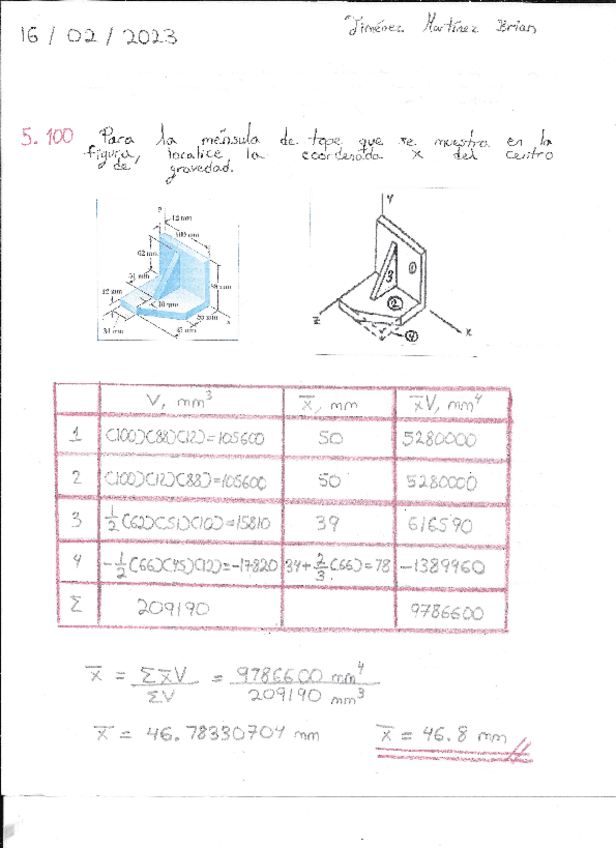 16 / 02 / 2023
Jiménez Martínez Brian
5.100 Para la ménsula de tope que se muestra en la
figura, localice la coordenada x del centro
de gravedad.
y
12 mm
100 mm
62 mm
51 mm
12 mm
10 mm
88 mm
55 mm
34 mm
45 mm
y
1
3
2
4
z
x
V, mm³ x̄, mm x̄V, mm⁴
1 (100)(88)(12)=105600 50 5280000
2 (100)(12)(88)=105600 50 5280000
3 ½(62)(51)(10)=15810 39 616590
4 -½(66)(45)(12)=-17820 34+⅔(66)=78 -1389960
Σ 209190 9786600
x̄ = Σx̄V / ΣV = 9786600 mm⁴ / 209190 mm³
x̄ = 46.78330704 mm x̄ = 46.8 mm